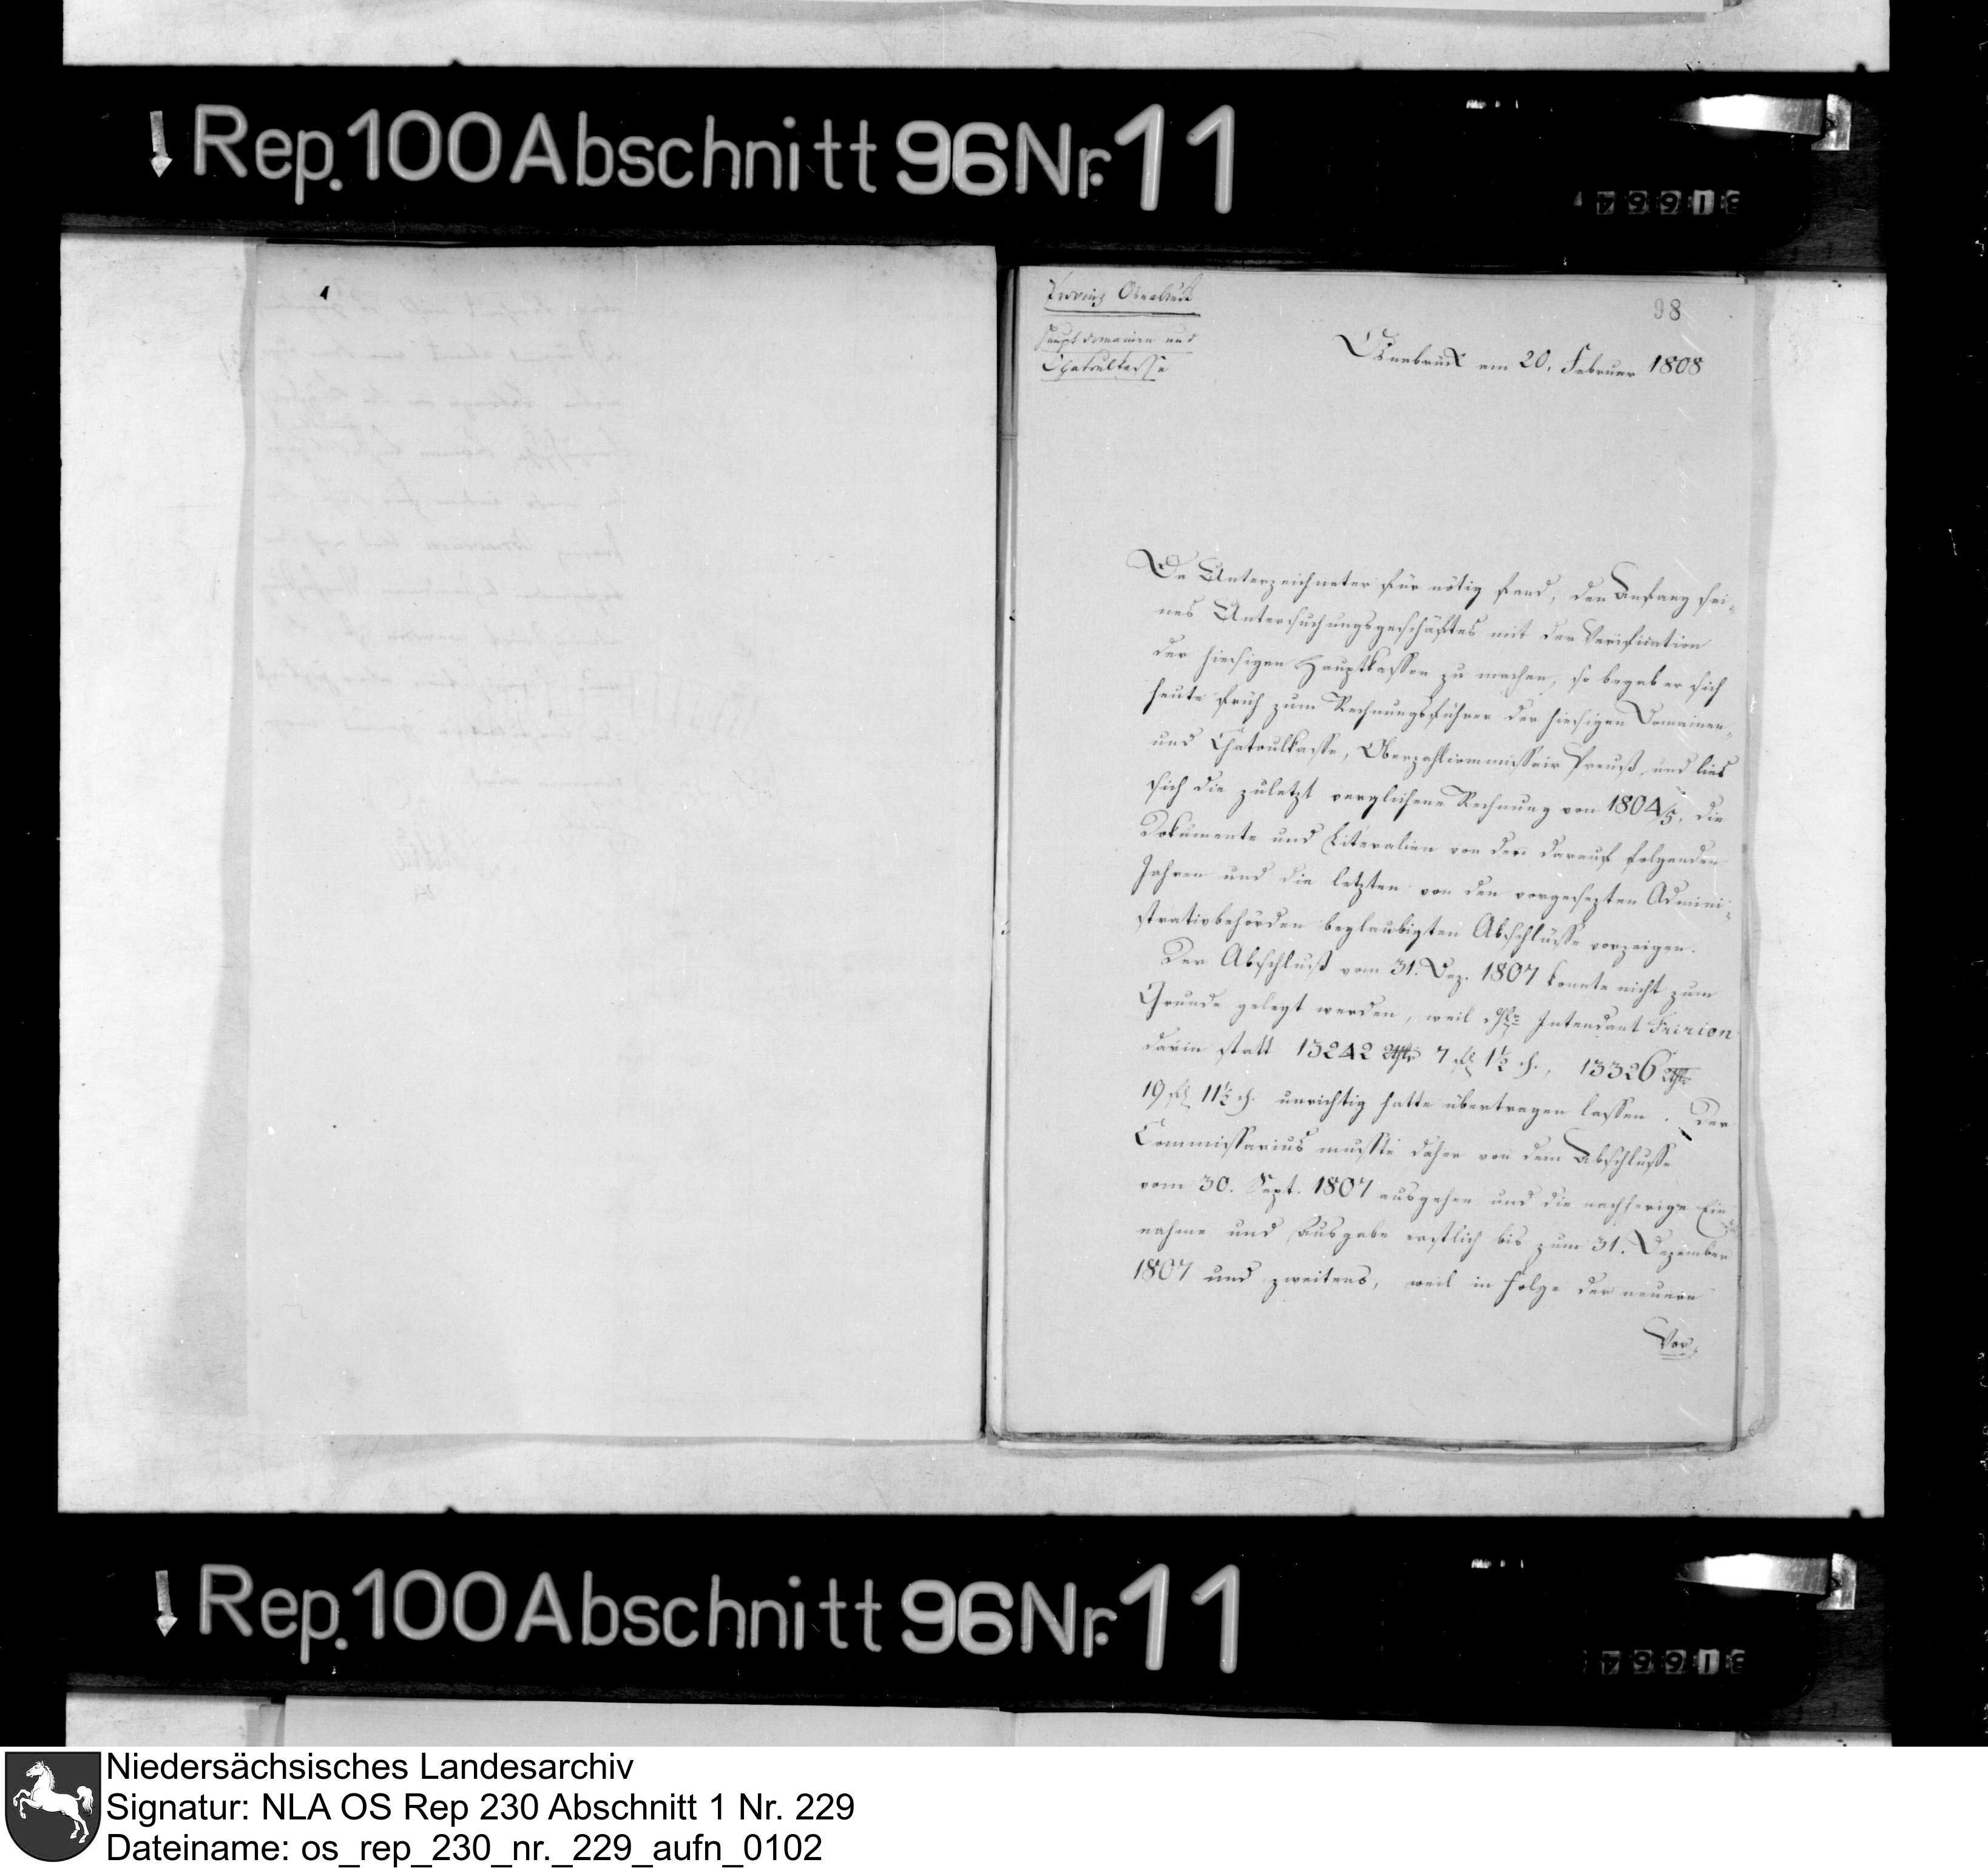 Rep. 100 Abschnitt 96 Nr. 11
Provinz Osnabrück
Hauptdomainen und
Chatoulkasse
98
Osnabrück am 20. Februar 1808
Da Unterzeichneter für nötig fand, den Anfang sei-
nes Untersuchungsgeschäftes mit der Verification
der hiesigen Hauptkassen zu machen, so begab er sich
heute früh zum Rechnungsführer der hiesigen Domainen-
und Chatoulkasse, Oberzahlcommissair Preuß, und lies
sich die zuletzt verglichene Rechnung von 1804/5, die
Dokumente und Literalien von den darauf folgenden
Jahren und die letzten von den vorgesezten Admini-
strativbehörden beglaubigten Abschlüsse vorzeigen.
Der Abschluß vom 31. Dez. 1807 konnte nicht zum
Grunde gelegt werden, weil Intendant Fririon
darin statt 13242 Rthlr 7 ßl 1½ d., 13326 Rthlr
19 ßl 11½ d. unrichtig hatte übertragen lassen. Der
Commissarius musste daher von dem Abschlusse
vom 30. Sept. 1807 ausgehen und die nachherige Ein-
nahme und Ausgabe erstlich bis zum 31. Dezember
1807 und zweitens, weil in Folge der neuern
Vor-
Rep. 100 Abschnitt 96 Nr. 11
Niedersächsisches Landesarchiv
Signatur: NLA OS Rep 230 Abschnitt 1 Nr. 229
Dateiname: os_rep_230_nr._229_aufn_0102